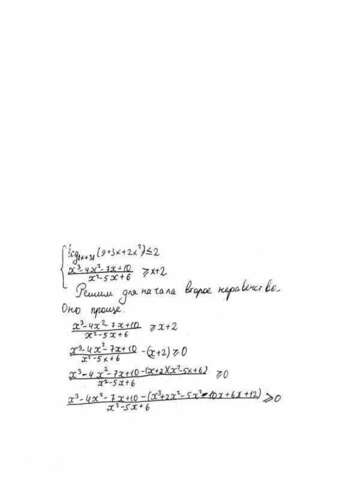 { log|x+3|(9+3x+2x²) ≤ 2
x³-4x²-7x+10 / x²-5x+6 ≥ x+2
Решим для начала второе неравенство.
Оно проще.
x³-4x²-7x+10 / x²-5x+6 ≥ x+2
x³-4x²-7x+10 / x²-5x+6 -(x+2) ≥ 0
x³-4x²-7x+10-(x+2)(x²-5x+6) / x²-5x+6 ≥ 0
x³-4x²-7x+10-(x³+2x²-5x²-10x+6x+12) / x²-5x+6 ≥ 0